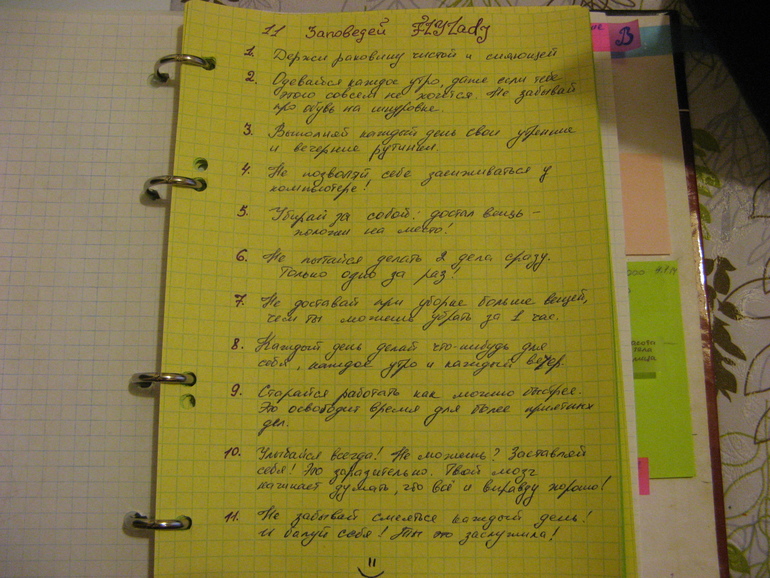 11 Заповедей FLYLady
1. Держи раковину чистой и сияющей
2. Одевайся каждое утро, даже если тебе
этого совсем не хочется. Не забывай
про обувь на шнуровке.
3. Выполняй каждый день свои утренние
и вечерние рутины.
4. Не позволяй себе засиживаться у
компьютера!
5. Убирай за собой: достал вещь –
положи на место!
6. Не пытайся делать 2 дела сразу.
Только одно за раз!
7. Не доставай при уборке больше вещей,
чем ты можешь убрать за 1 час.
8. Каждый день делай что-нибудь для
себя, каждое утро и каждый вечер.
9. Старайся работать как можно быстрее.
Это освободит время для более приятных
дел.
10. Улыбайся всегда! Не можешь? Заставляй
себя! Это заразительно. Твой мозг
начинает думать, что всё и вправду хорошо!
11. Не забывай смеяться каждый день!
И балуй себя! Ты это заслужила!
В